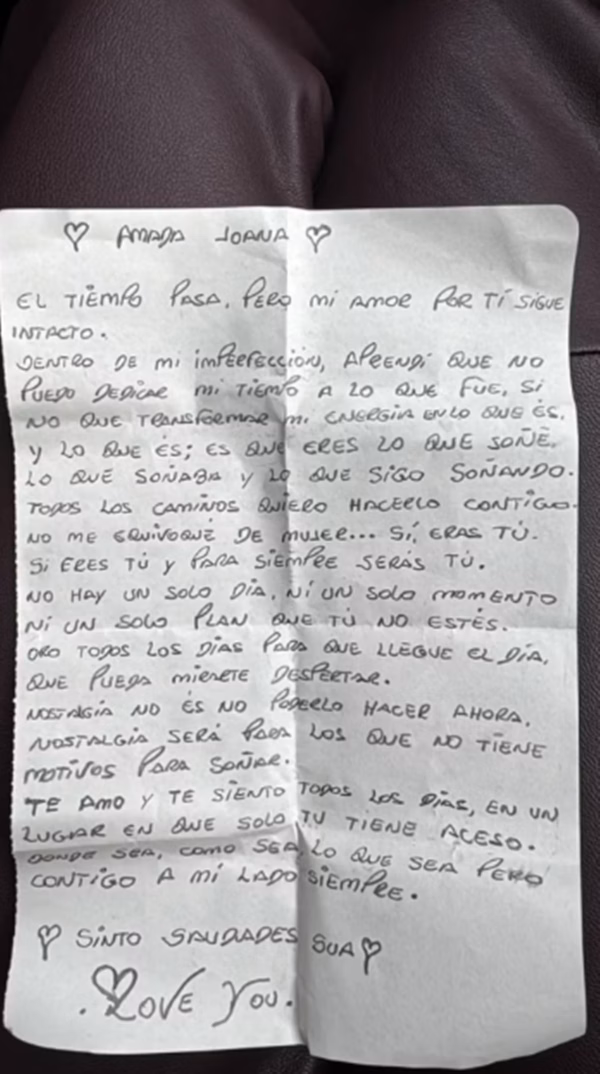 ♡ AMADA JOANA ♡
EL TIEMPO PASA, PERO MI AMOR POR TÍ SIGUE
INTACTO.
DENTRO DE MI IMPERFECCIÓN, APRENDÍ QUE NO
PUEDO DEDICAR MI TIEMPO A LO QUE FUE, SI
NO QUE TRANSFORMAR MI ENERGIA EN LO QUE ÉS.
Y LO QUE ÉS; ES QUE ERES LO QUE SOÑÉ.
LO QUE SOÑABA Y LO QUE SIGO SOÑANDO.
TODOS LOS CAMINOS QUIERO HACERLO CONTIGO.
NO ME EQUIVOQUÉ DE MUJER... SÍ, ERAS TÚ.
SI ERES TÚ Y PARA SIEMPRE SERÁS TÚ.
NO HAY UN SOLO DÍA, NI UN SOLO MOMENTO
NI UN SOLO PLAN QUE TÚ NO ESTÉS.
ORO TODOS LOS DÍAS PARA QUE LLEGUE EL DÍA,
QUE PUEDA MIRARTE DESPERTAR.
NOSTALGÍA NO ÉS NO PODERLO HACER AHORA,
NOSTALGÍA SERÁ PARA LOS QUE NO TIENE
MOTIVOS PARA SOÑAR.
TE AMO Y TE SIENTO TODOS LOS DÍAS, EN UN
LUGAR EN QUE SOLO TU TIENE ACESO.
DONDE SEA, COMO SEA, LO QUE SEA PERO
CONTIGO A MI LADO SIEMPRE.
♡ SINTO SAUDADES SUA ♡
. LOVE YOU.